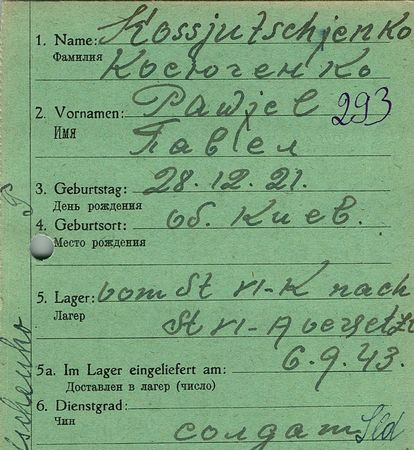 1. Name: Kossjutschjenko
Фамилия Косюченко
2. Vornamen: Pawjel 293
Имя Павел
3. Geburtstag: 28.12.21.
День рождения
4. Geburtsort: об. Киев.
Место рождения
5. Lager: vom St VI-K nach
Лагер St VI-A versetzt
5a. Im Lager eingeliefert am: 6.9.43.
Доставлен в лагер (число)
6. Dienstgrad:
Чин солдат Sld